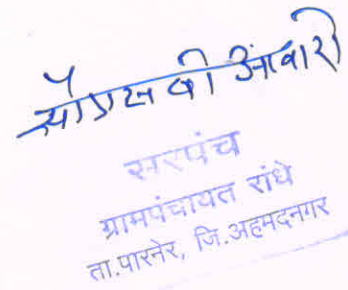 सौ एस बी आवारी
सरपंच
ग्रामपंचायत रांधे
ता.पारनेर, जि.अहमदनगर